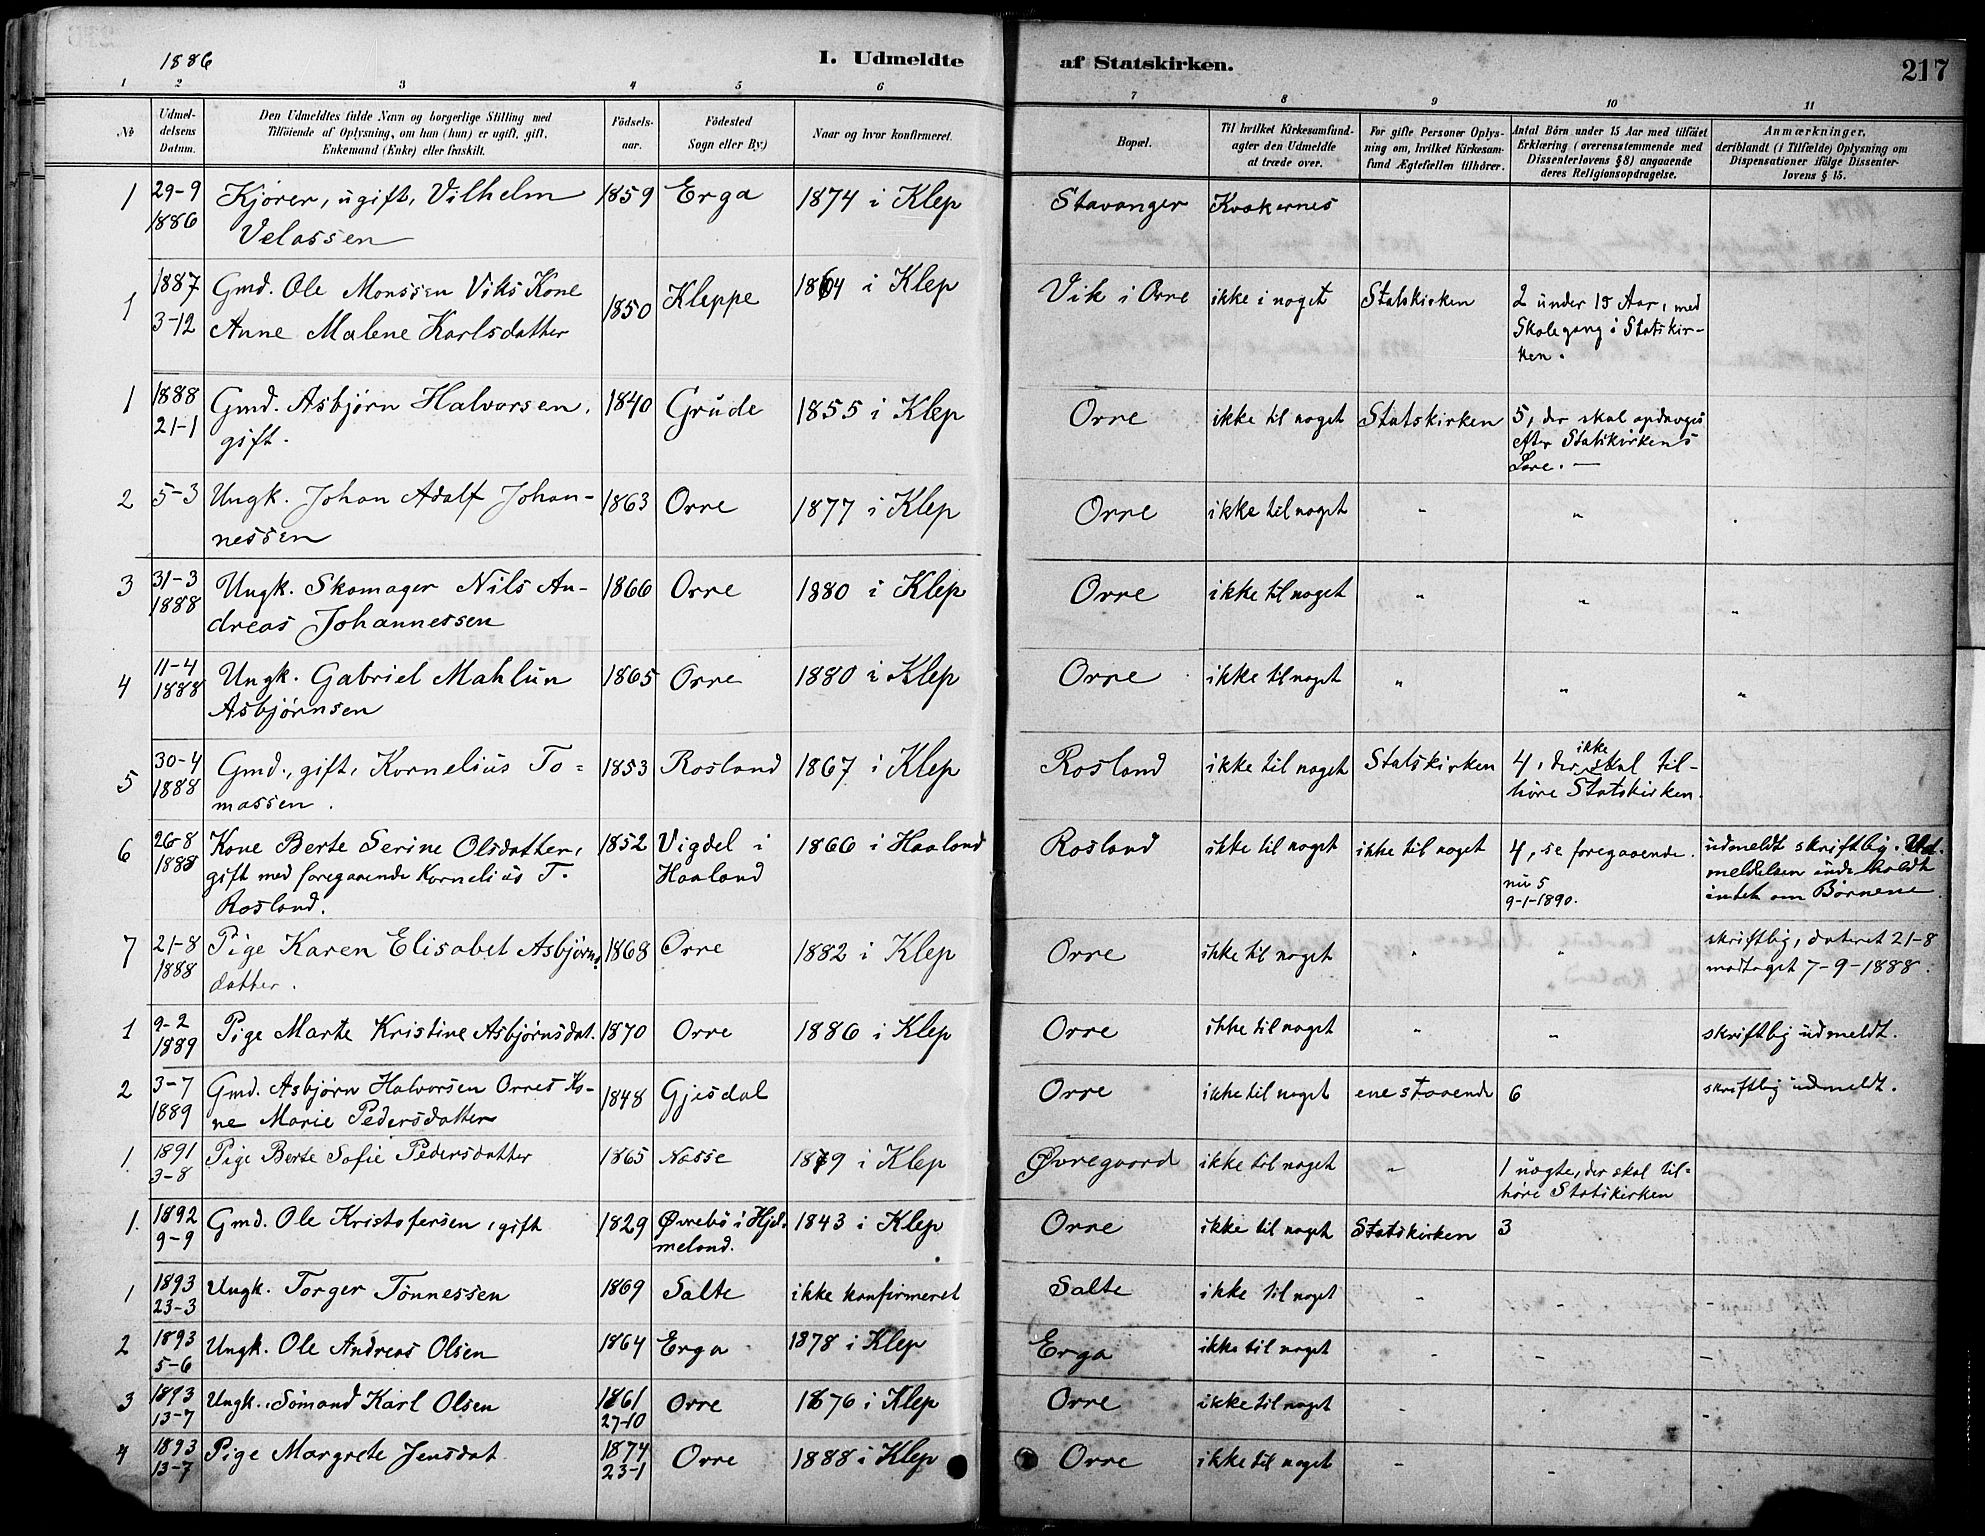 1886
I. Udmeldte af Statskirken.
217
1 2 3 4 5 6 7 8 9 10 11
No
Udmel-
delsens
Datum.
Den Udmeldtes fulde Navn og borgerlige Stilling med
Tilföiende af Oplysning, om han (hun) er ugift, gift,
Enkemand (Enke) eller fraskilt.
Födsels-
aar.
Födested
Sogn eller By.)
Naar og hvor konfirmeret.
Bopæl.
Til hvilket Kirkesamfund-
agter den Udmeldte
at træde over.
For gifte Personer Oplys-
ning om, hvilket Kirkesam-
fund Ægtefællen tilhörer.
Antal Börn under 15 Aar med tilföiet
Erklæring (overensstemmende med
Dissenterlovens § 8) angaaende
deres Religionsopdragelse.
Anmærkninger,
deriblandt (i Tilfælde) Oplysning om
Dispensationer ifölge Dissenter-
lovens § 15.
1 29-9 Kjører, ugift, Vilhelm 1859 Erga 1874 i Klep Stavanger Kvækernes
1886 Velassen
1 1887 Gmd. Ole Monssen Viks Kone 1850 Kleppe 1864 i Klep Vik i Orre ikke i noget Statskirken 2 under 15 Aar, med
3-12 Anne Malene Karlsdatter Skolegang i Statskir-
ken.
1 1888 Gmd. Asbjørn Halvorsen, 1840 Grude 1855 i Klep Orre ikke til noget Statskirken 5, der skal opdrages
21-1 gift. efter Statskirkens
Lære. —
2 5-3 Ungk. Johan Adolf Johan- 1863 Orre 1877 i Klep Orre ikke til noget " "
nessen
3 31-3 Ungk. Skomager Nils An- 1866 Orre 1880 i Klep Orre ikke til noget " " "
1888 dreas Johannessen
4 11-4 Ungk. Gabriel Mahlun 1865 Orre 1880 i Klep Orre ikke til noget " " "
1888 Asbjørnsen
5 30-4 Gmd., gift, Kornelius To= 1853 Rosland 1867 i Klep Rosland ikke til noget Statskirken 4, der ikke skal til-
1888 massen. høre Statskirken.
6 26-8 Kone Berte Serine Olsdatter, 1852 Vigdel i 1866 i Haaland Rosland ikke til noget ikke til noget 4, se foregaaende. udmeldt skriftlig. Ud-
1888 gift med foregaaende Kornelius T. Haaland nu 5 meldelsen indeholdt
Rosland. 9-1-1890. intet om Børnene
7 21-8 Pige Karen Elisabet Asbjørns 1868 Orre 1882 i Klep Orre ikke til noget " " skriftlig, dateret 21-8
1888 datter. modtaget 7-9-1888.
1 9-2 Pige Marte Kristine Asbjørnsdat. 1870 Orre 1886 i Klep Orre ikke til noget " " skriftlig udmeldt.
1889
2 3-7 Gmd. Asbjørn Halvorsen Orres Ko- 1848 Gjesdal Orre ikke til noget enestaaende 6 skriftlig udmeldt.
1889 ne Marie Pedersdatter
1. 1891 Pige Berte Sofie Pedersdatter 1865 Nasse 1879 i Klep Øvregaard ikke til noget " 1 uægte, der skal til-
3-8 høre Statskirken
1. 1892 Gmd. Ole Kristofersen, gift 1829 Øvrebø i Hjel- 1843 i Klep Orre ikke til noget Statskirken 3
9-9 meland.
1 1893 Ungk. Torger Tönnessen 1869 Salte ikke konfirmeret Salte ikke til noget - - -
23-3
2 1893 Ungk. Ole Andreas Olsen 1864 Erga 1878 i Klep Erga ikke til noget - - -
5-6
3 1893 Ungk. Sömand Karl Olsen 1861 Orre 1876 i Klep Orre ikke til noget - - -
13-7 27-10
4 1893 Pige Margrete Jensdat 1874 Orre 1888 i Klep Orre ikke til noget - -
13-7 23-1